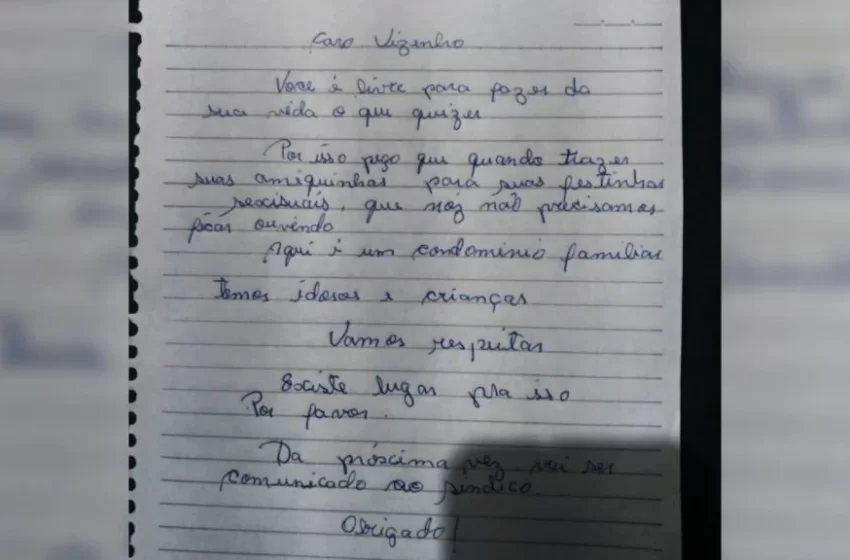 Caro Vizinho
Voce é livre para fazer da
sua vida o que quizer
Por isso peço que quando trazer
suas amiguinhas para suas festinhas
sexsuais, que noz não precisamos
ficar ouvindo
Aqui é um condominio familiar
temos idosos e crianças
Vamos respeitar
Existe lugar pra isso
Por favor.
Da próscima vez vai ser
comunicado ao sindico
Obrigado!